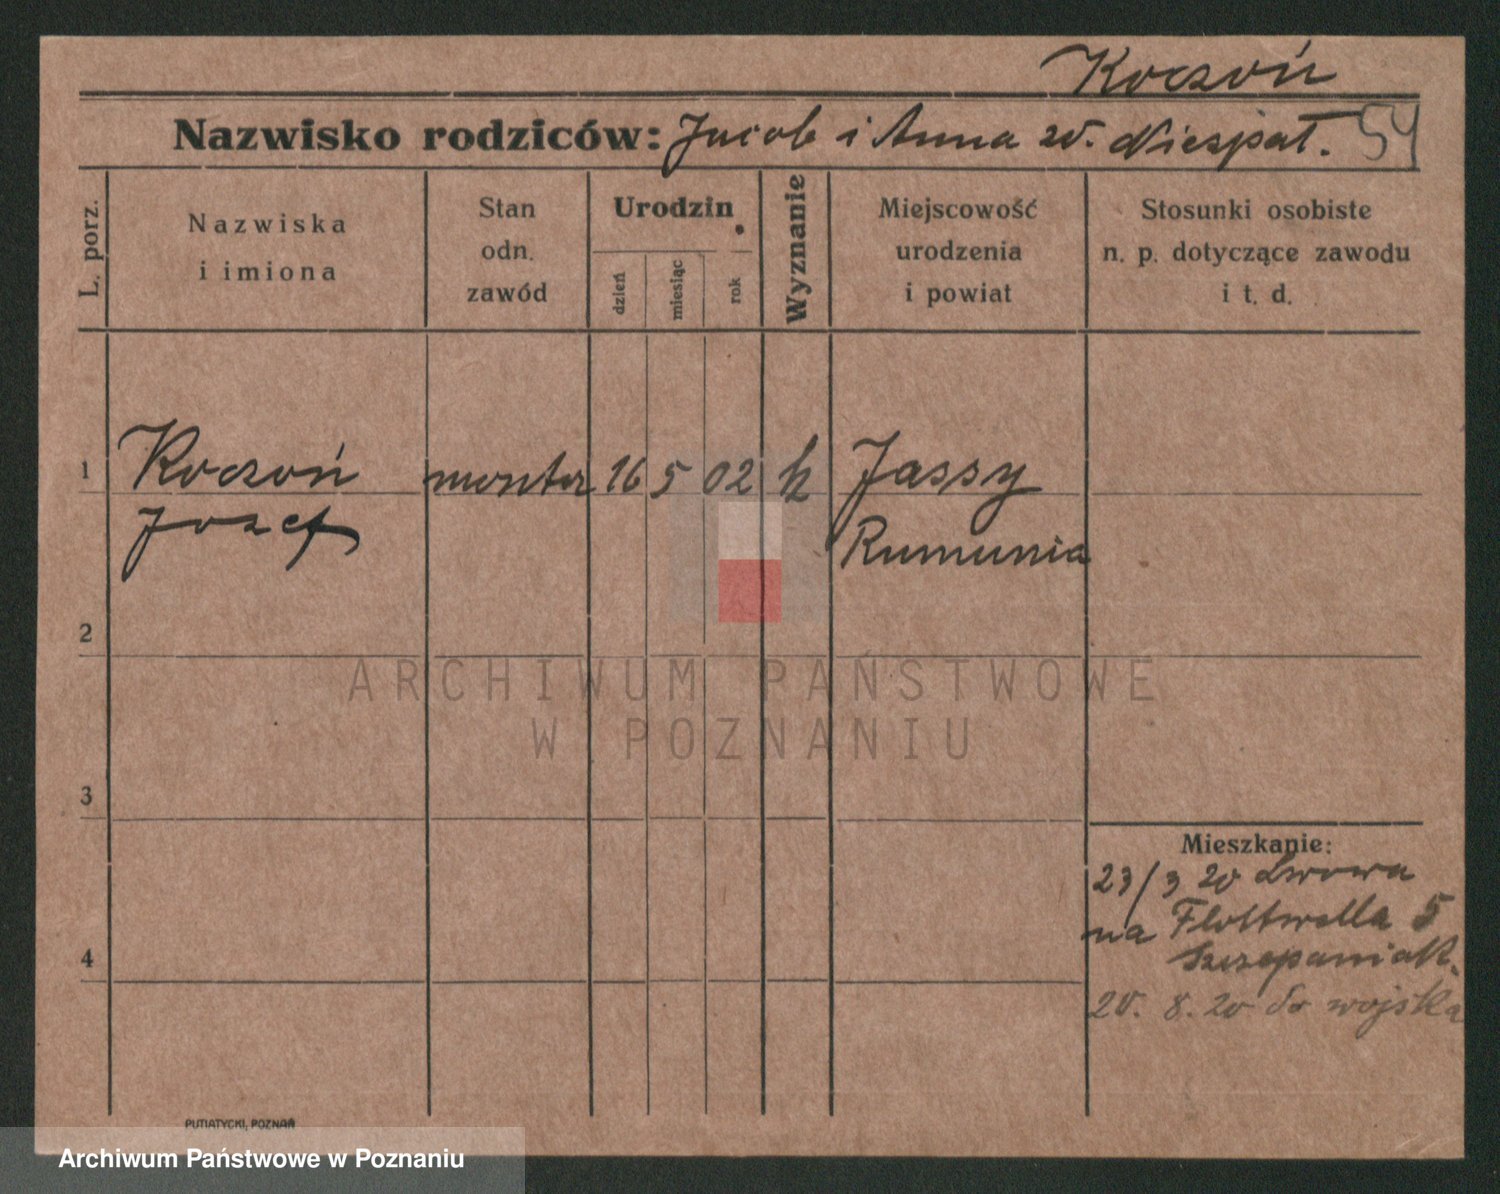 Koczoń
Nazwisko rodziców: Jacob i Anna zd. Niespał. 54
L. porz.
Nazwiska
i imiona
Stan
odn.
zawód
Urodzin
dzień
miesiąc
rok
Wyznanie
Miejscowość
urodzenia
i powiat
Stosunki osobiste
n. p. dotyczące zawodu
i t. d.
1 Koczoń monter 16 5 02 k Jassy
Jozef Rumunia
2
ARCHIWUM PAŃSTWOWE
W POZNANIU
3
Mieszkanie:
23/3 20 Lwowa
na Flottwella 5
Szczepaniak.
4
20. 8. 20 do wojska
PUTIATYCKI, POZNAŃ
Archiwum Państwowe w Poznaniu